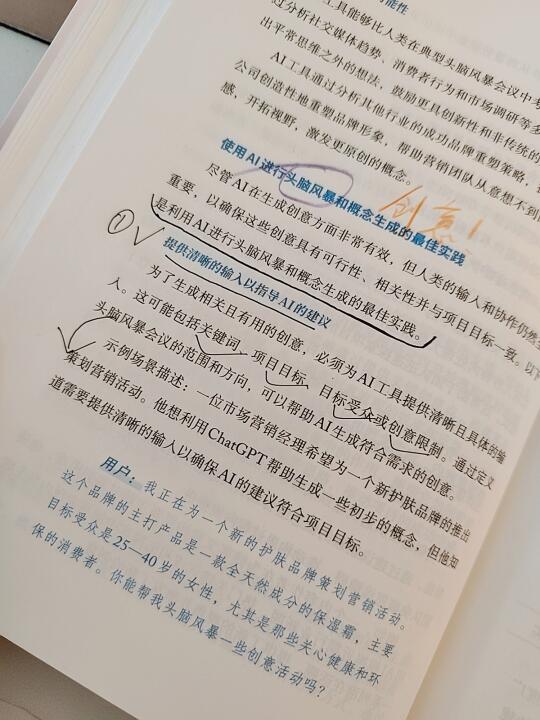 可能性
工具能够比人类在典型头脑风暴会议中考
过分析社交媒体趋势、消费者行为和市场调研等多
出平常思维之外的想法，鼓励更具创新性和非传统的
AI工具通过分析其他行业的成功品牌重塑策略，
公司创造性地重塑品牌形象，帮助营销团队从意想不到
感，开拓视野，激发更原创的概念。
使用AI进行头脑风暴和概念生成的最佳实践
创意！
尽管AI在生成创意方面非常有效，但人类的输入和协作仍然
重要，以确保这些创意具有可行性、相关性并与项目目标一致。以下
是利用AI进行头脑风暴和概念生成的最佳实践。
① 提供清晰的输入以指导AI的建议
为了生成相关且有用的创意，必须为AI工具提供清晰且具体的输
人。这可能包括关键词、项目目标、目标受众或创意限制。通过定义
头脑风暴会议的范围和方向，可以帮助AI生成符合需求的创意。
示例场景描述：一位市场营销经理希望为一个新护肤品牌的推出
策划营销活动。他想利用ChatGPT帮助生成一些初步的概念，但他知
道需要提供清晰的输人以确保AI的建议符合项目目标。
用户：我正在为一个新的护肤品牌策划营销活动。
这个品牌的主打产品是一款全天然成分的保湿霜，主要
目标受众是25—40岁的女性，尤其是那些关心健康和环
保的消费者。你能帮我头脑风暴一些创意活动吗？